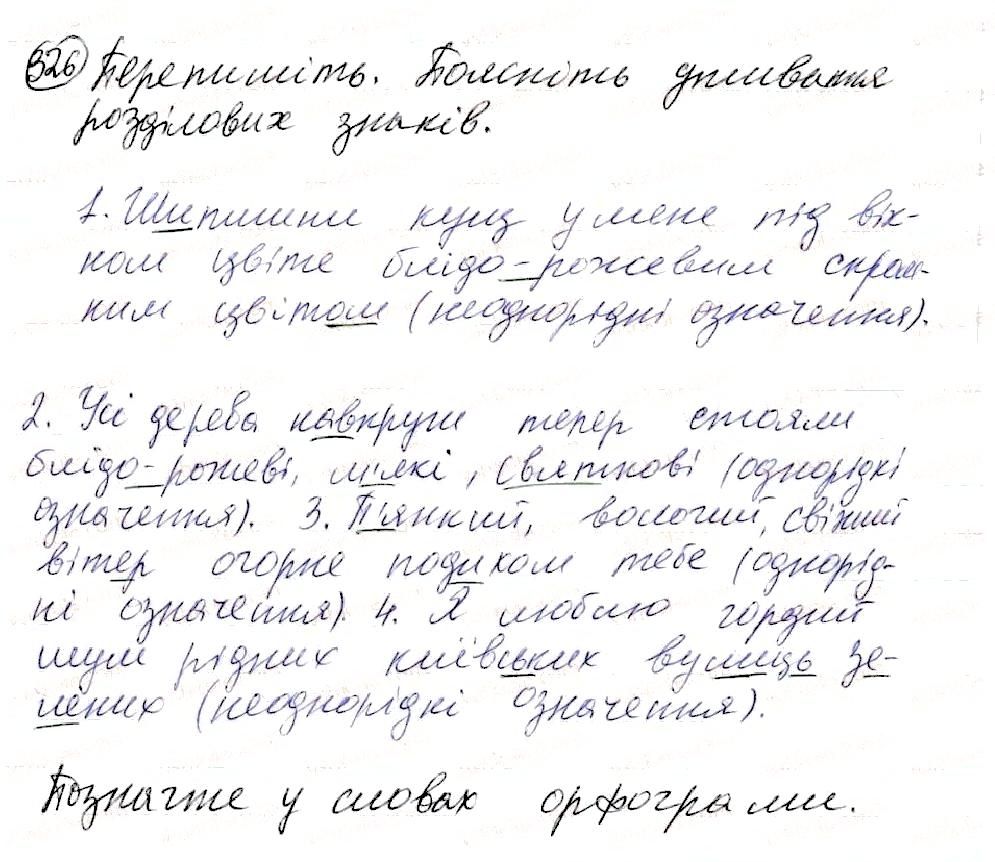 326 Перепишіть. Поясніть уживання
розділових знаків.
1. Шипшини кущ у мене під вік-
ном цвіте блідо-рожевим скром-
ним цвітом (неоднорідні означення).
2. Усі дерева навкруги тепер стояли
блідо-рожеві, м'які, святкові (однорідні
означення). 3. П'янкий, вологий, свіжий
вітер огорне подихом тебе (однорід-
ні означення). 4. Я люблю гордий
шум рідних київських вулиць зе-
лених (неоднорідні означення).
Позначте у словах орфограми.